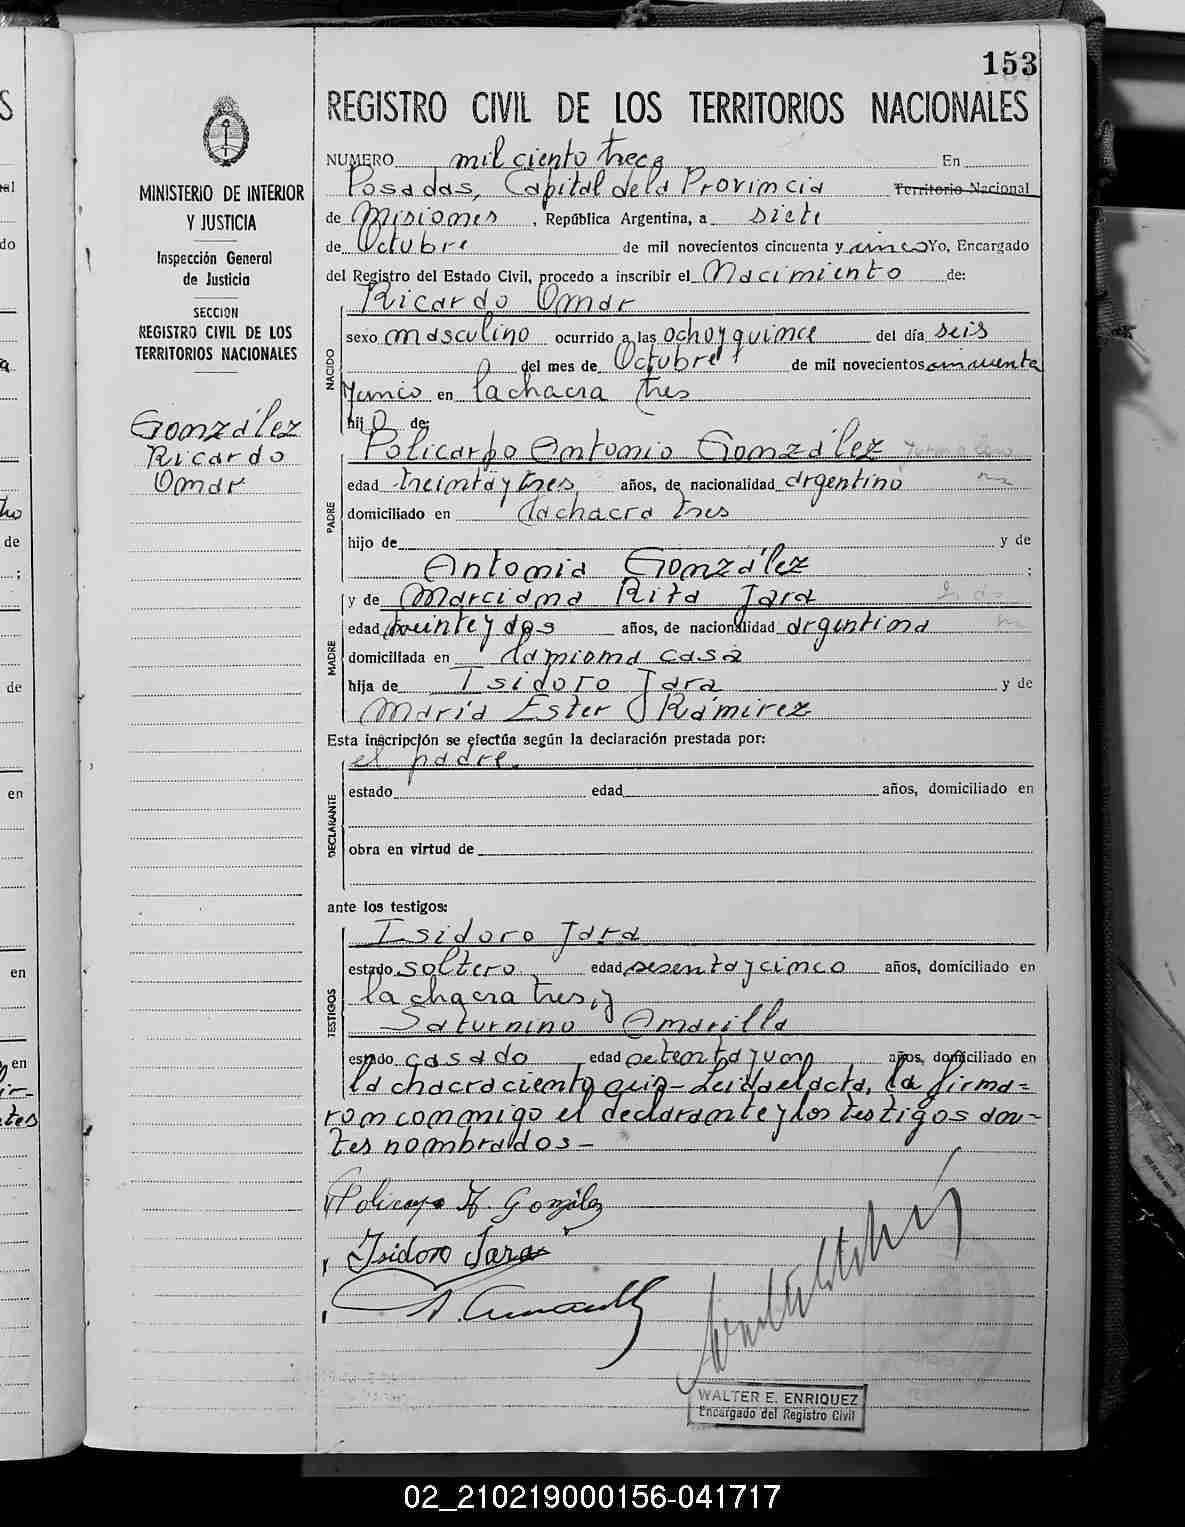 153
REGISTRO CIVIL DE LOS TERRITORIOS NACIONALES
MINISTERIO DE INTERIOR
Y JUSTICIA
Inspección General
de Justicia
SECCION
REGISTRO CIVIL DE LOS
TERRITORIOS NACIONALES
González
Ricardo
Omar
NUMERO mil ciento trece En
Posadas, Capital de la Provincia Territorio Nacional
de Misiones, República Argentina, a siete
de Octubre de mil novecientos cincuenta y cinco Yo, Encargado
del Registro del Estado Civil, procedo a inscribir el Nacimiento de:
NACIDO
Ricardo Omar
sexo masculino ocurrido a las ocho y quince del día seis
del mes de Octubre de mil novecientos cincuenta
y cinco en la chacra tres
hijo de:
PADRE
Policarpo Antonio González
edad treinta y tres años, de nacionalidad argentino
domiciliado en la chacra tres
hijo de y de
Antonia González ;
MADRE
y de Marciana Rita Jara
edad veinte y dos años, de nacionalidad argentina
domiciliada en la misma casa
hija de Isidoro Jara y de
María Ester Rámirez
Esta inscripción se efectúa según la declaración prestada por:
DECLARANTE
el padre.
estado edad años, domiciliado en
obra en virtud de
ante los testigos:
TESTIGOS
Isidoro Jara
estado soltero edad sesenta y cinco años, domiciliado en
la chacra tres, y
Saturnino Amarilla
estado casado edad setenta y uno años, domiciliado en
la chacra ciento Leida el acta, la firma=
ron conmigo el declarante y los testigos an-
tes nombrados-
Policarpo A. González
Isidoro Jara
WALTER E. ENRIQUEZ
Encargado del Registro Civil
02_210219000156-041717